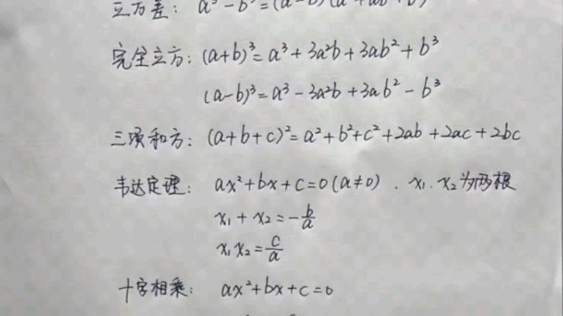 立方差： a³-b³=(a-b)(a²+ab+b²)
完全立方：(a+b)³=a³+3a²b+3ab²+b³
(a-b)³=a³-3a²b+3ab²-b³
三项和方：(a+b+c)²=a²+b²+c²+2ab+2ac+2bc
韦达定理： ax²+bx+c=0(a≠0)．x₁．x₂为两根
x₁+x₂=-b/a
x₁x₂=c/a
十字相乘： ax²+bx+c=0